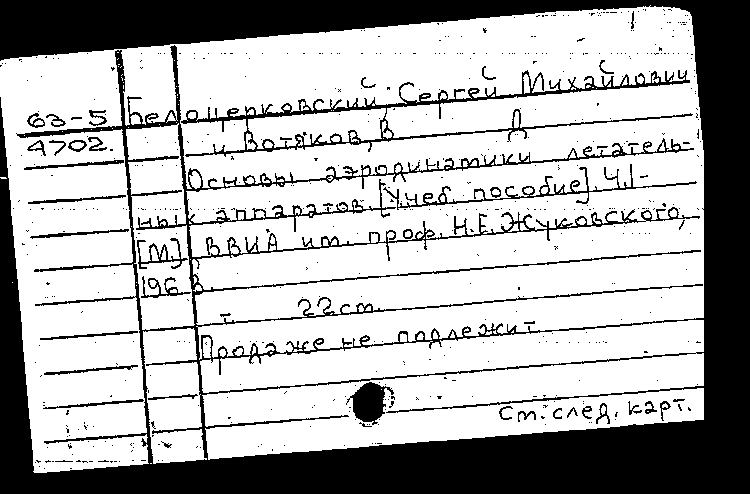 63-5 Белоцерковский Сергей Михайлович
4702. и Вотяков, В Д
Основы аэродинамики летатель-
ных аппаратов. [Учеб. пособие]. Ч.1-
[М.], ВВИА им. проф. Н.Е. Жуковского,
1963.
т. 22см.
Продаже не подлежит
См. след. карт.